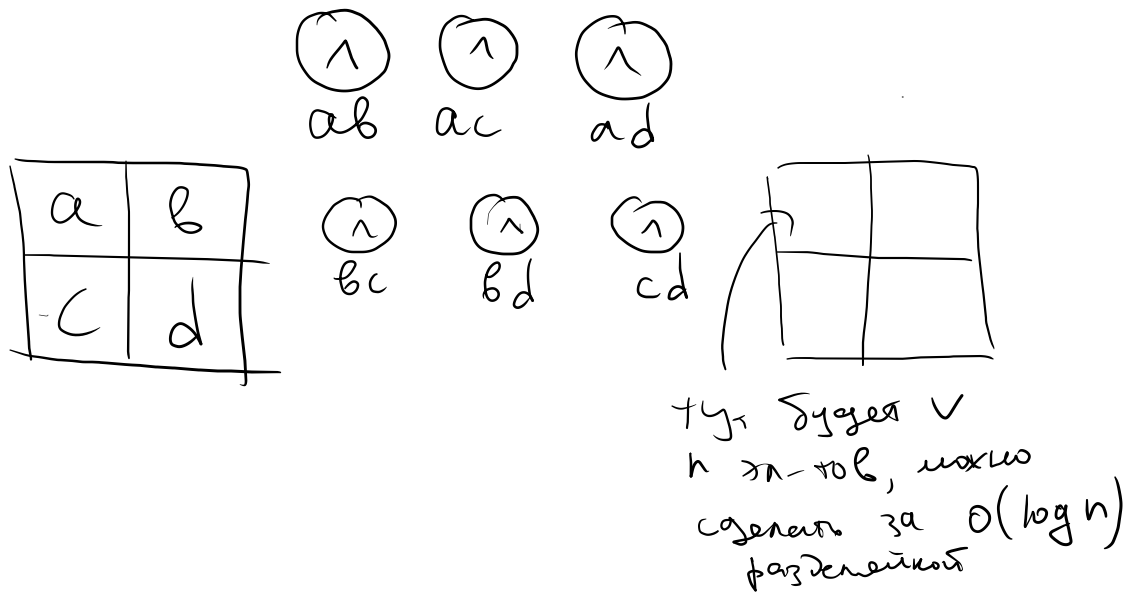 ∧ ∧ ∧
ab ac ad
a b
∧ ∧ ∧
bc bd cd
c d
тут будет ∨
n эл-тов, можно
сделать за O(log n)
разделяйкой